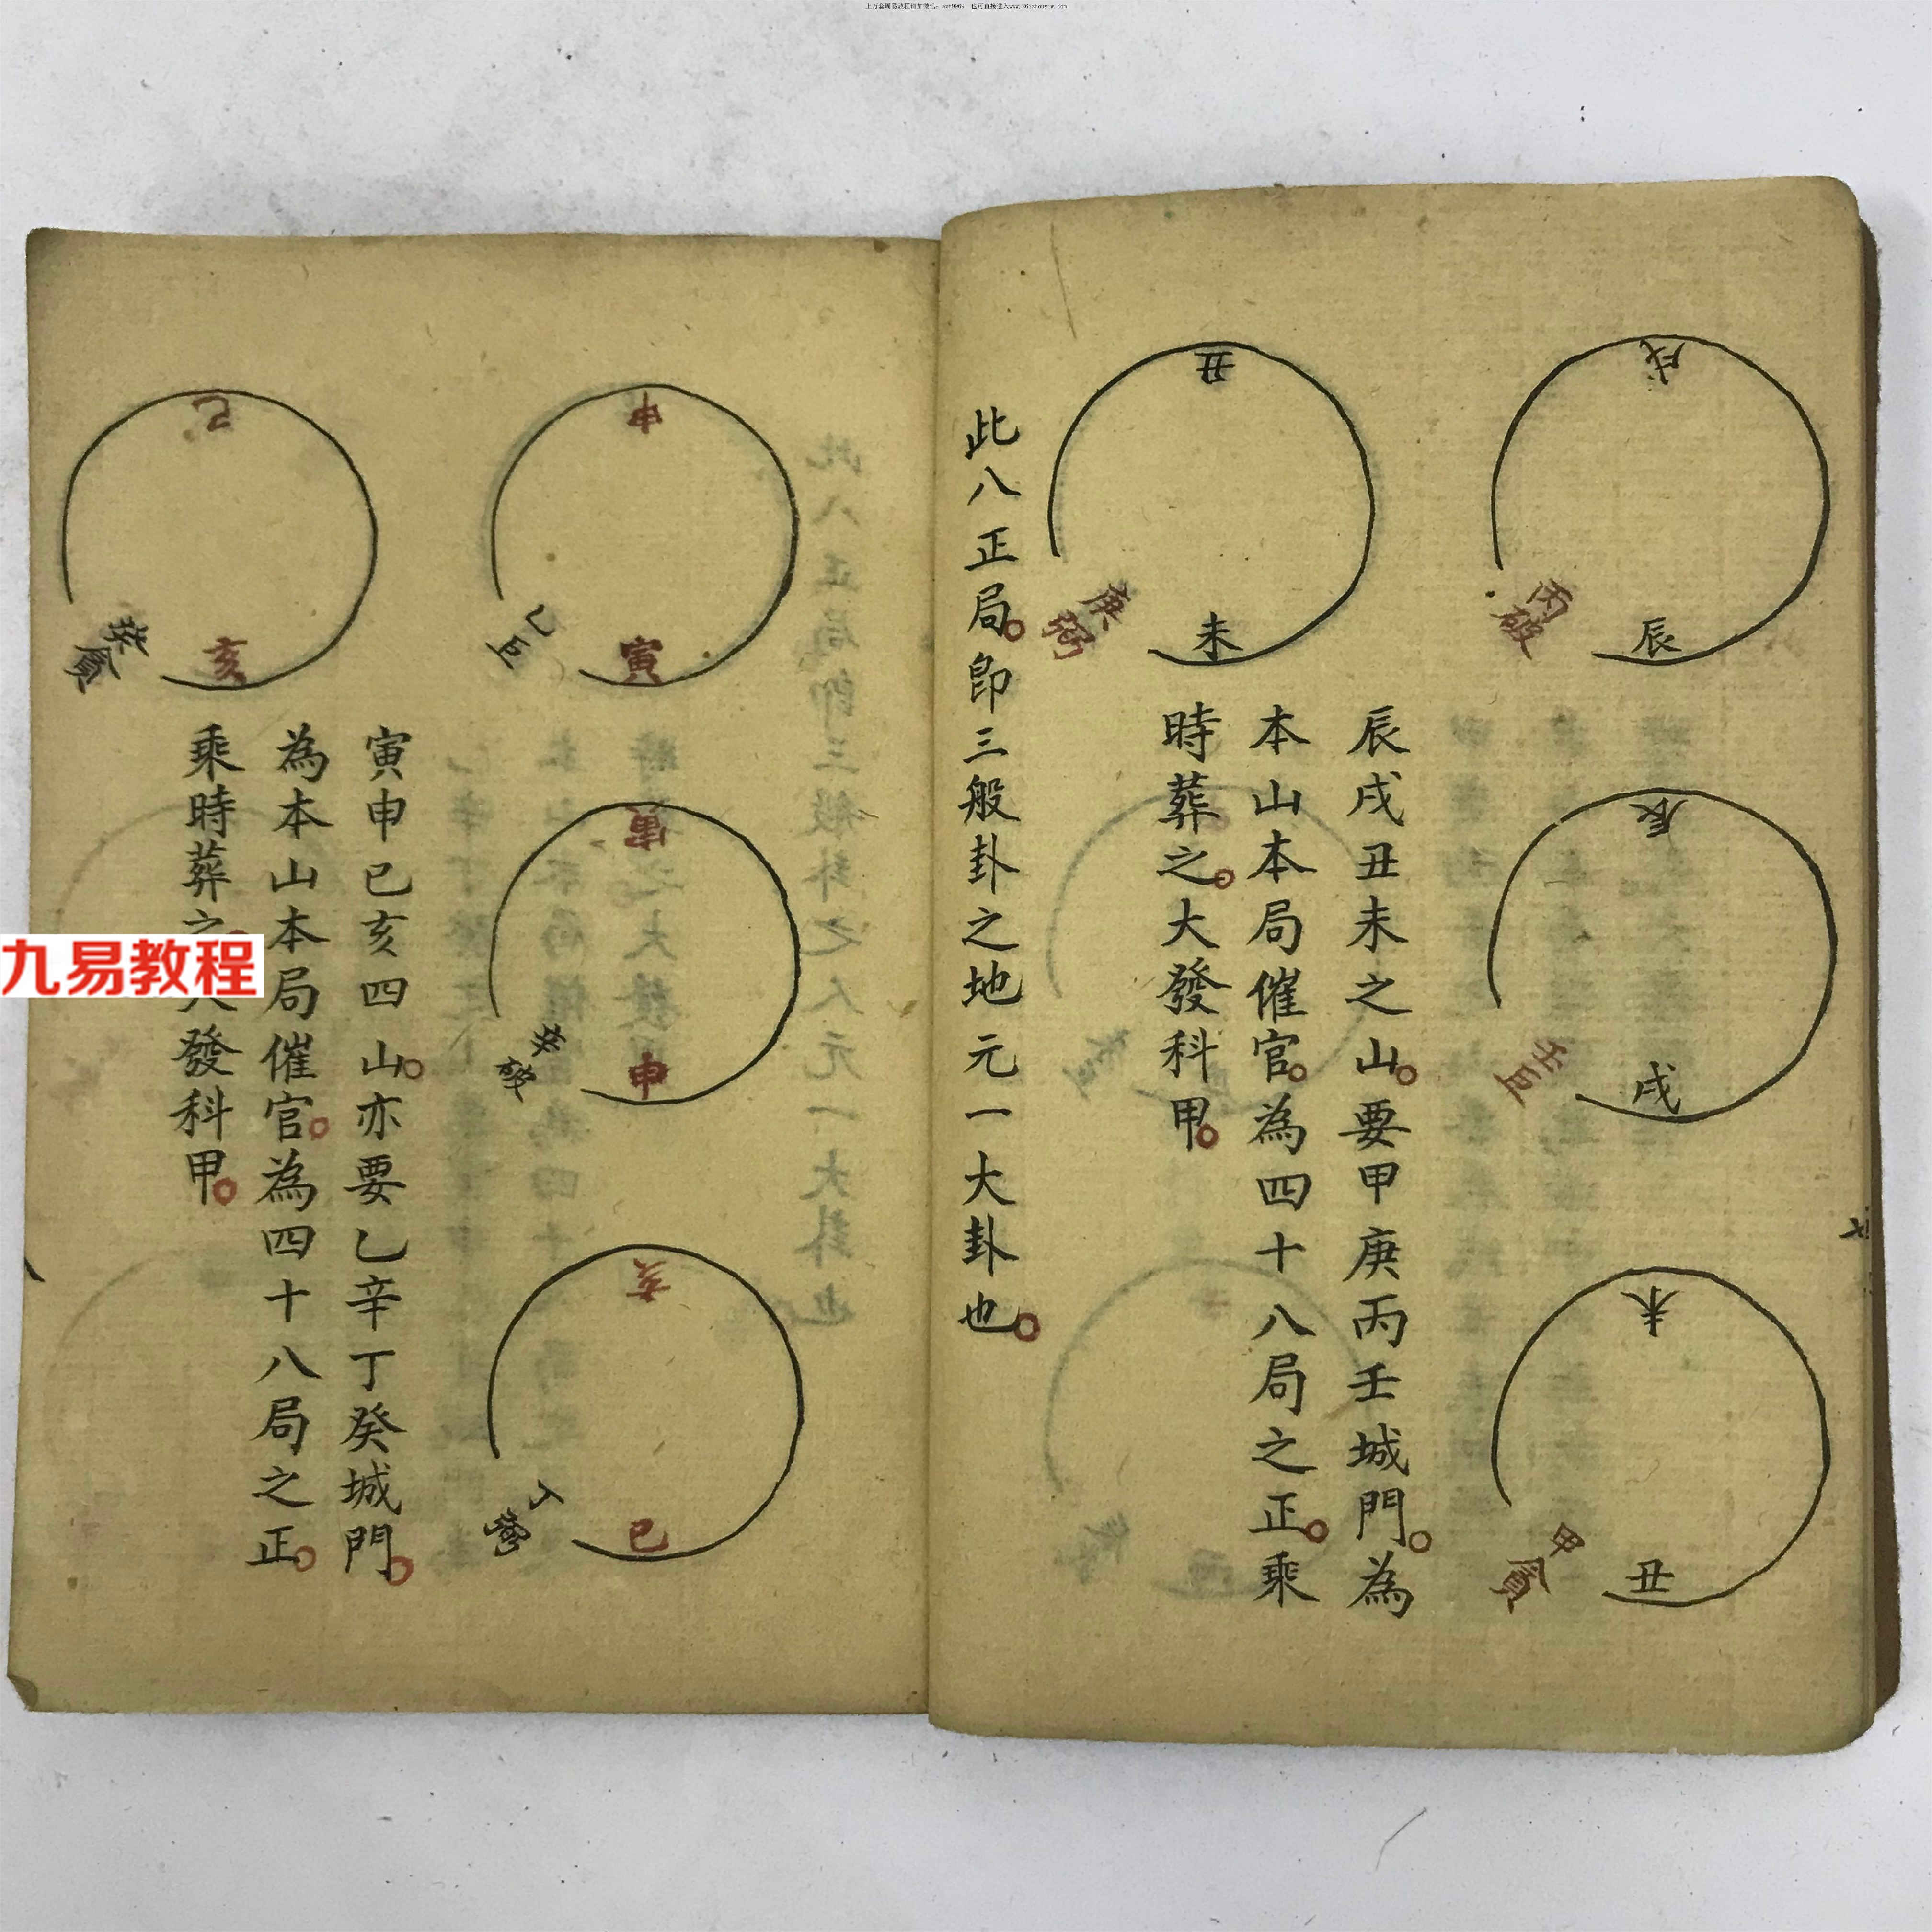 上万套周易教程请加微信：uzh9969 也可直接进入www.265zhouyiw.com
戌
辰
丙破
辰
戌
壬巨
未
丑
甲貪
丑
未
庚弼
辰戌丑未之山要甲庚丙壬城門為
本山本局催官為四十八局之正乘
時葬之大發科甲
此八正局即三般卦之地元一大卦也
申
寅
乙巨
寅
申
亥
巳
丁
巳
亥
癸貪
寅申巳亥四山亦要乙辛丁癸城門
為本山本局催官為四十八局之正
乘時葬之大發科甲
九易教程